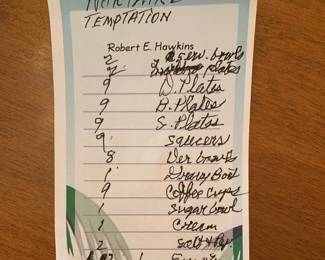 TEMPTATION
Robert E. Hawkins
2 serv. bowls
2 plates
9 D. Plates
9 B. Plates
9 S. Plates
9 saucers
8 Der bowls
1 Boat
9 Coffee Cups
1 sugar bowl
1 Cream
2 salt + Pep